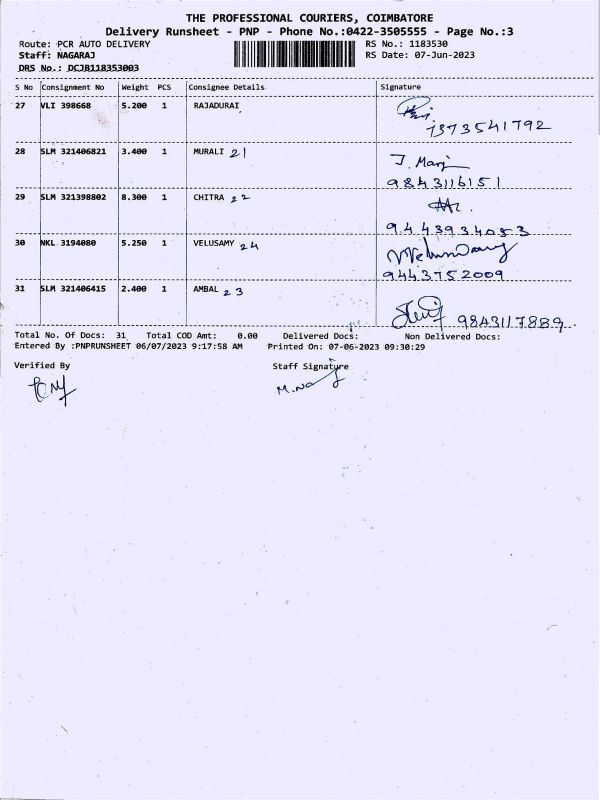 THE PROFESSIONAL COURIERS, COIMBATORE
Delivery Runsheet - PNP - Phone No.:0422-3505555 - Page No.:3
Route: PCR AUTO DELIVERY RS No.: 1183530
Staff: NAGARAJ RS Date: 07-Jun-2023
DRS No.: DCJB118353003
S No Consignment No Weight PCS Consignee Details Signature
27 VLI 398668 5.200 1 RAJADURAI
7373541792
28 SLM 321406821 3.400 1 MURALI 21
9843116151
29 SLM 321398802 8.300 1 CHITRA 22
9443934053
30 NKL 3194080 5.250 1 VELUSAMY 24
9443752009
31 SLM 321406415 2.400 1 AMBAL 23
9843117889
Total No. Of Docs: 31 Total COD Amt: 0.00 Delivered Docs: Non Delivered Docs:
Entered By :PNPRUNSHEET 06/07/2023 9:17:58 AM Printed On: 07-06-2023 09:30:29
Verified By Staff Signature